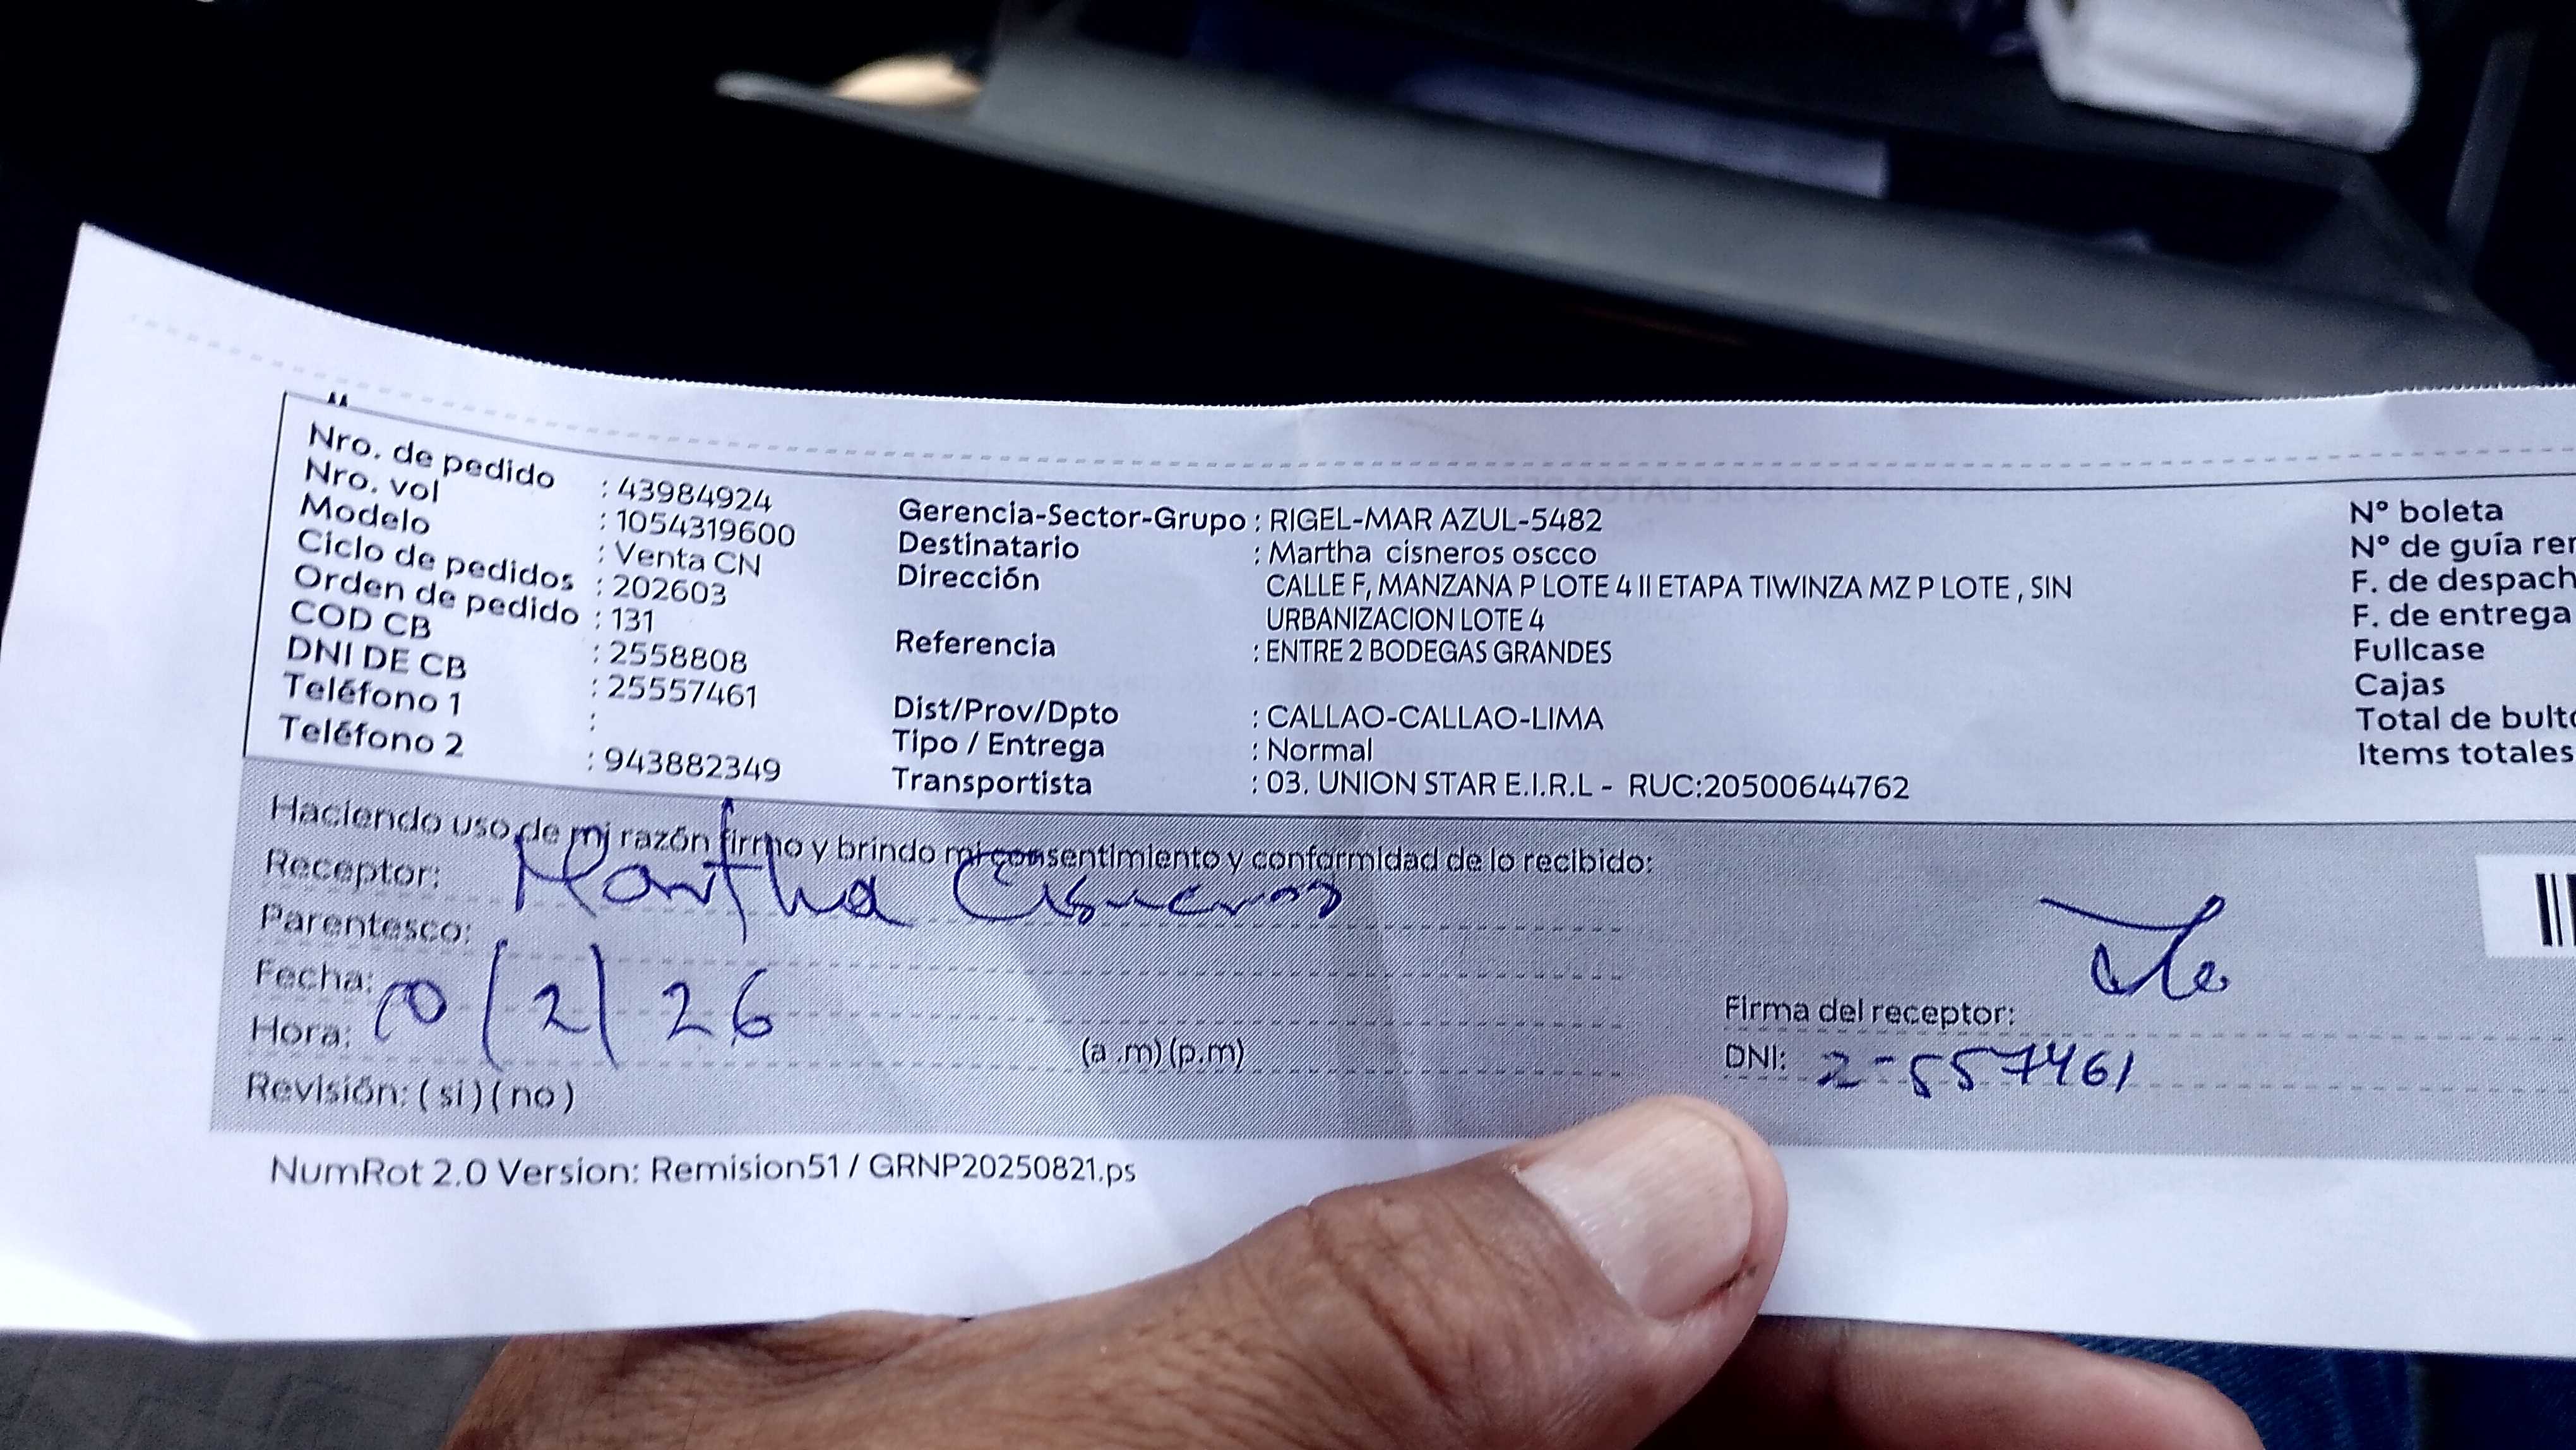 Nro. de pedido : 43984924
Nro. vol : 1054319600
Modelo : Venta CN
Ciclo de pedidos : 202603
Orden de pedido : 131
COD CB : 2558808
DNI DE CB : 25557461
Teléfono 1 :
Teléfono 2 : 943882349
Gerencia-Sector-Grupo : RIGEL-MAR AZUL-5482
Destinatario : Martha cisneros oscco
Dirección CALLE F, MANZANA P LOTE 4 II ETAPA TIWINZA MZ P LOTE , SIN
URBANIZACION LOTE 4
Referencia : ENTRE 2 BODEGAS GRANDES
Dist/Prov/Dpto : CALLAO-CALLAO-LIMA
Tipo / Entrega : Normal
Transportista : 03. UNION STAR E.I.R.L - RUC:20500644762
N° boleta
N° de guía rer
F. de despach
F. de entrega
Fullcase
Cajas
Total de bulto
Items totales
Haciendo uso de mi razón firmo y brindo mi consentimiento y conformidad de lo recibido:
Receptor: Martha Cisneros
Parentesco:
Fecha: 10/2/26
Hora: (a .m) (p.m)
Revisión: ( si ) ( no )
Firma del receptor:
DNI: 2-557461
NumRot 2.0 Version: Remision51 / GRNP20250821.ps